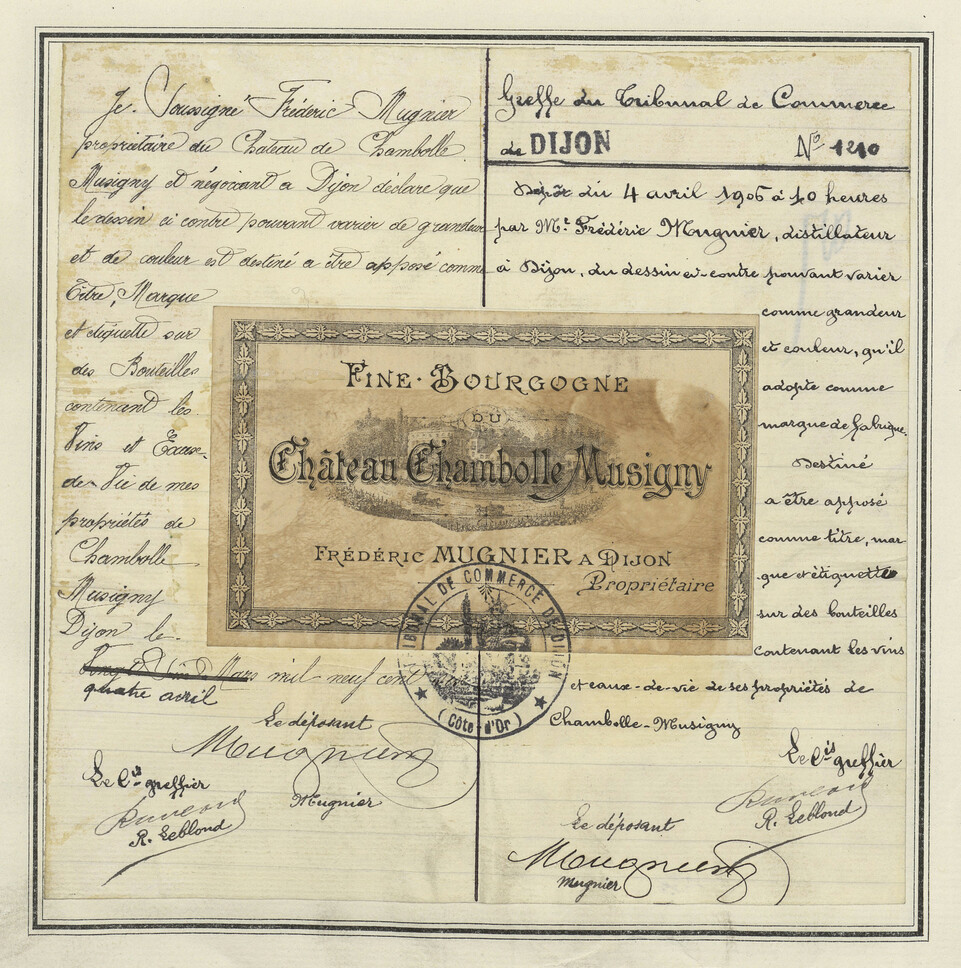 Je Soussigné Frédéric Mugnier
propriétaire du Chateau de Chambolle
Musigny et négociant a Dijon déclare que
le dessin ci contre pouvant varier de grandeur
et de couleur est destiné a être apposé comme
Titre, Marque
et etiquette sur
des Bouteilles
contenant les
Vins et Eaux-
de-Vie de mes
propriétés de
Chambolle
Musigny
Dijon le
Mars mil neuf cent
quatre avril
Le déposant
Mugnier
Le Cis greffier
Mugnier
R. Leblond
Greffe du Tribunal de Commerce
de DIJON No 1210
Dépôt du 4 avril 1906 à 10 heures
par Mr. Frédéric Mugnier, distillateur
à Dijon, du dessin ci-contre pouvant varier
comme grandeur
et couleur, qu'il
adopte comme
marque de fabrique.
Destiné
a être apposé
comme titre, mar-
que et étiquette
sur des bouteilles
contenant les vins
et eaux-de-vie de ses propriétés de
Chambolle-Musigny
Le Cis greffier
R. Leblond
Le déposant
Mugnier
Mugnier
FINE·BOURGOGNE
DU
Château Chambolle Musigny
FRÉDÉRIC MUGNIER A DIJON
Propriétaire
TRIBUNAL DE COMMERCE DE DIJON
(Côte-d'Or)